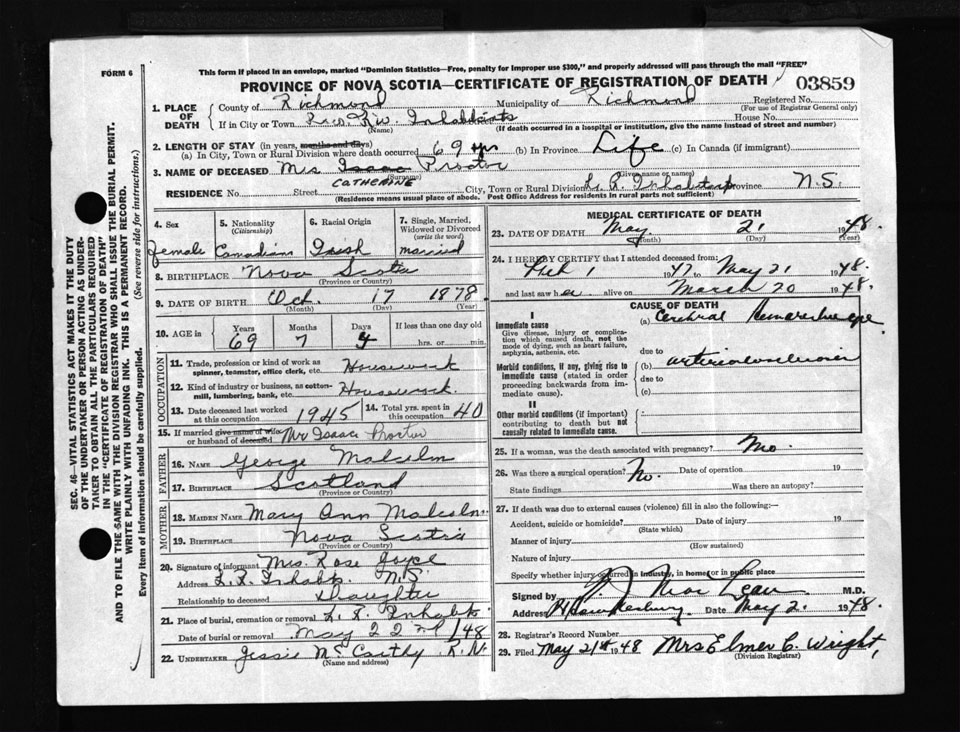 FORM 6
This form if placed in an envelope, marked "Dominion Statistics—Free, penalty for improper use $300," and properly addressed will pass through the mail "FREE"
PROVINCE OF NOVA SCOTIA—CERTIFICATE OF REGISTRATION OF DEATH 03859
1. PLACE OF DEATH
County of Richmond Municipality of Richmond Registered No.
(For use of Registrar General only)
If in City or Town Riv. Inhabitants House No.
(Name) (If death occurred in a hospital or institution, give the name instead of street and number)
2. LENGTH OF STAY (in years, months and days)
(a) In City, Town or Rural Division where death occurred 69 yrs (b) In Province Life (c) In Canada (if immigrant)
3. NAME OF DECEASED Mrs Isaac Proctor
(Surname) (Given name or names)
CATHERINE
RESIDENCE No. Street City, Town or Rural Division L. R. Inhabitants Province N.S.
(Residence means usual place of abode. Post Office Address for residents in rural parts not sufficient)
4. Sex
5. Nationality
(Citizenship)
6. Racial Origin
7. Single, Married, Widowed or Divorced
(write the word)
female Canadian Irish married
8. BIRTHPLACE Nova Scotia
(Province or Country)
9. DATE OF BIRTH Oct. 17 1878
(Month) (Day) (Year)
10. AGE in Years Months Days If less than one day old
69 7 4 hrs. or min.
OCCUPATION
11. Trade, profession or kind of work as
spinner, teamster, office clerk, etc. Housework
12. Kind of industry or business, as cotton-
mill, lumbering, bank, etc. Housework.
13. Date deceased last worked
at this occupation 1945
14. Total yrs. spent in
this occupation 40
15. If married give name of wife
or husband of deceased Mr Isaac Proctor
FATHER
16. NAME George Malcolm
17. BIRTHPLACE Scotland
(Province or Country)
MOTHER
18. MAIDEN NAME Mary Ann Malcolm
19. BIRTHPLACE Nova Scotia
(Province or Country)
20. Signature of informant Mrs. Rose Joyce
Address L. R. Inhabts. N.S.
Relationship to deceased Daughter
21. Place of burial, cremation or removal L. R. Inhabts
Date of burial or removal May 22nd /48
22. UNDERTAKER Jessie McCarthy R.N.
(Name and address)
MEDICAL CERTIFICATE OF DEATH
23. DATE OF DEATH May 21 1948.
(Month) (Day) (Year)
24. I HEREBY CERTIFY that I attended deceased from:
Feb 1 1947 to May 21 1948.
and last saw her alive on March 20 1948.
CAUSE OF DEATH
I
Immediate cause
Give disease, injury or complication which caused death, not the mode of dying, such as heart failure, asphyxia, asthenia, etc.
(a) Cerebral
due to
Morbid conditions, if any, giving rise to immediate cause (stated in order proceeding backwards from immediate cause).
(b)
due to
(c)
II
Other morbid conditions (if important) contributing to death but not causally related to immediate cause.
25. If a woman, was the death associated with pregnancy? No
26. Was there a surgical operation? No. Date of operation 19
State findings Was there an autopsy?
27. If death was due to external causes (violence) fill in also the following:—
Accident, suicide or homicide? Date of injury 19
(State which)
Manner of injury
(How sustained)
Nature of injury
Specify whether injury occurred in industry, in home or in public place
Signed by MacLean M.D.
Address Hawkesbury Date May 2. 1948.
28. Registrar's Record Number
29. Filed May 21st 1948 Mrs Elmer C. Wright,
(Division Registrar)
SEC. 46—VITAL STATISTICS ACT MAKES IT THE DUTY
OF THE UNDERTAKER OR PERSON ACTING AS UNDER-
TAKER TO OBTAIN ALL THE PARTICULARS REQUIRED
IN THE "CERTIFICATE OF REGISTRATION OF DEATH"
AND TO FILE THE SAME WITH THE DIVISION REGISTRAR WHO SHALL ISSUE THE BURIAL PERMIT.
WRITE PLAINLY WITH UNFADING INK. THIS IS A PERMANENT RECORD.
Every item of information should be carefully supplied. (See reverse side for instructions.)